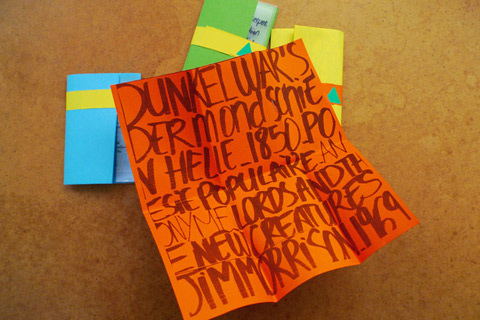 DUNKEL WAR'S
DER MOND SCHIE
N HELLE_1850_PO
ESIE POPULAIRE AN
ONYME LORDS AND TH
E NEW CREATURES
JIM MORRISON 1969